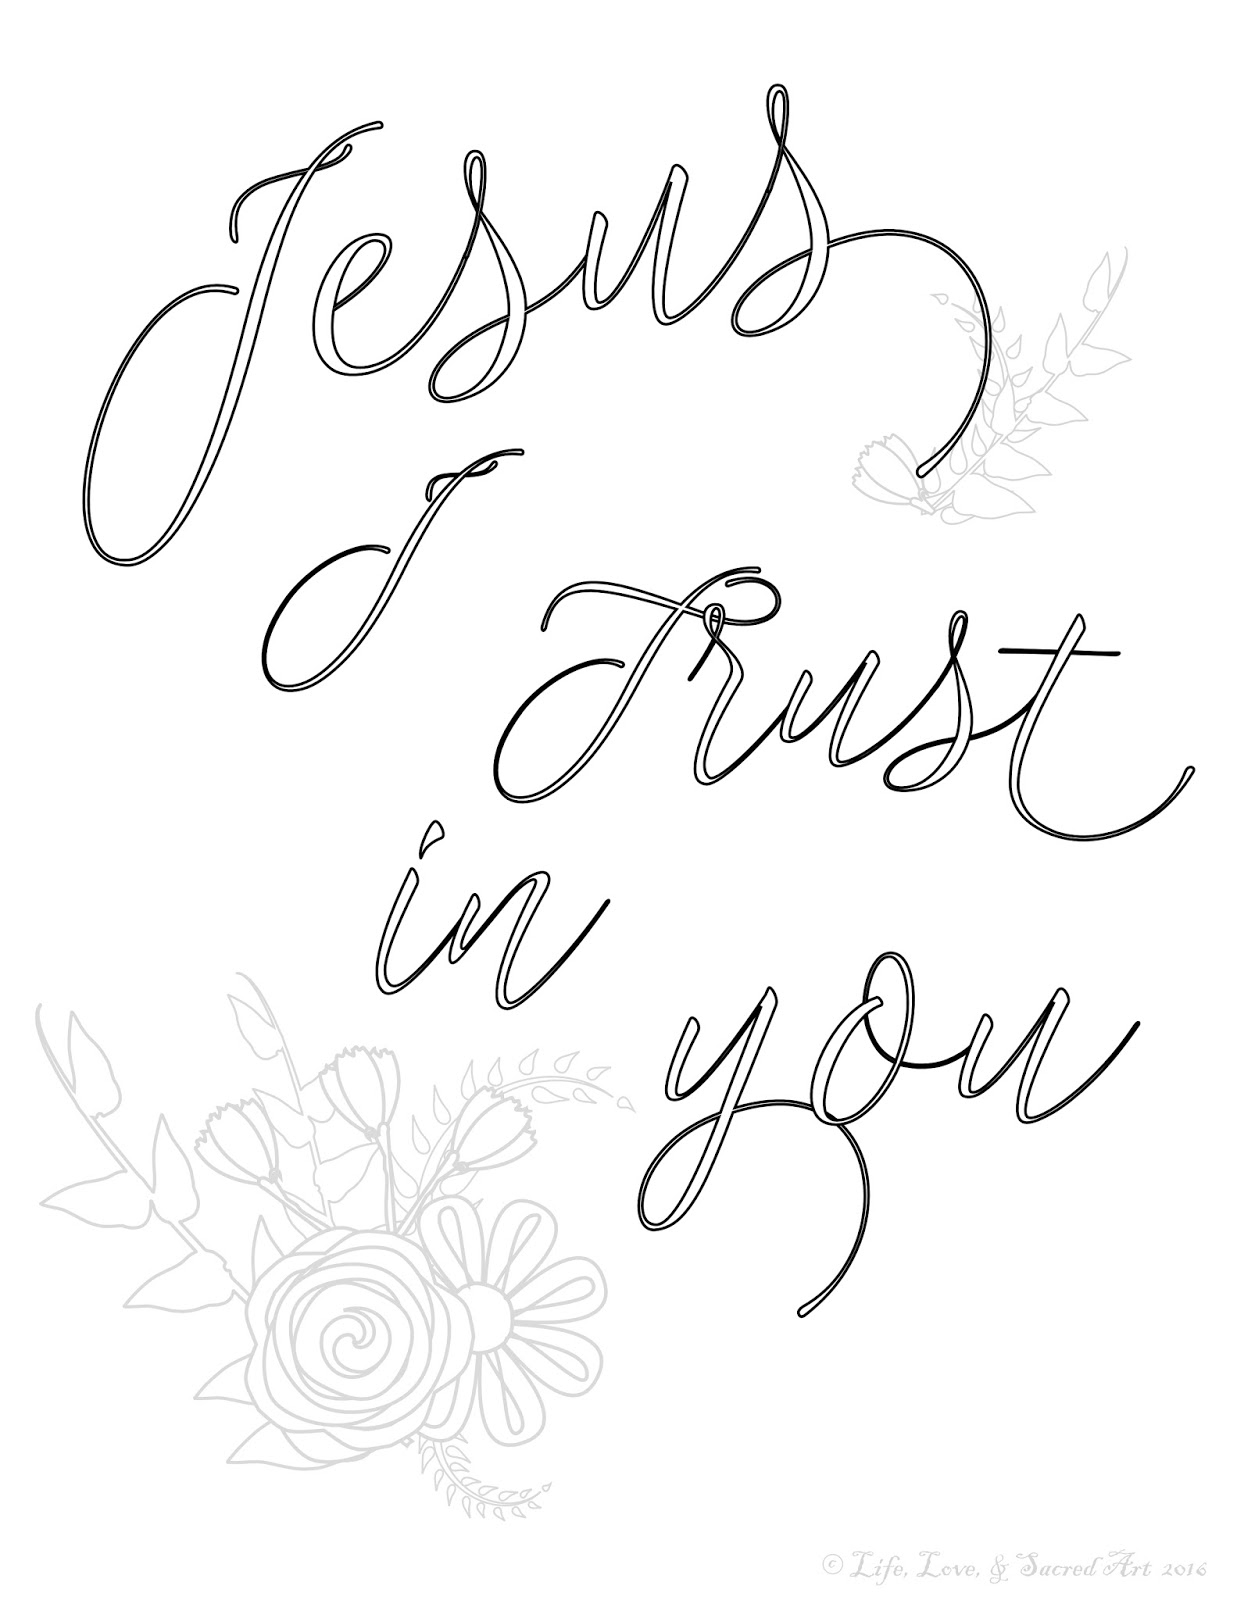 Jesus
I
Trust
in
you
© Life, Love, & Sacred Art 2016